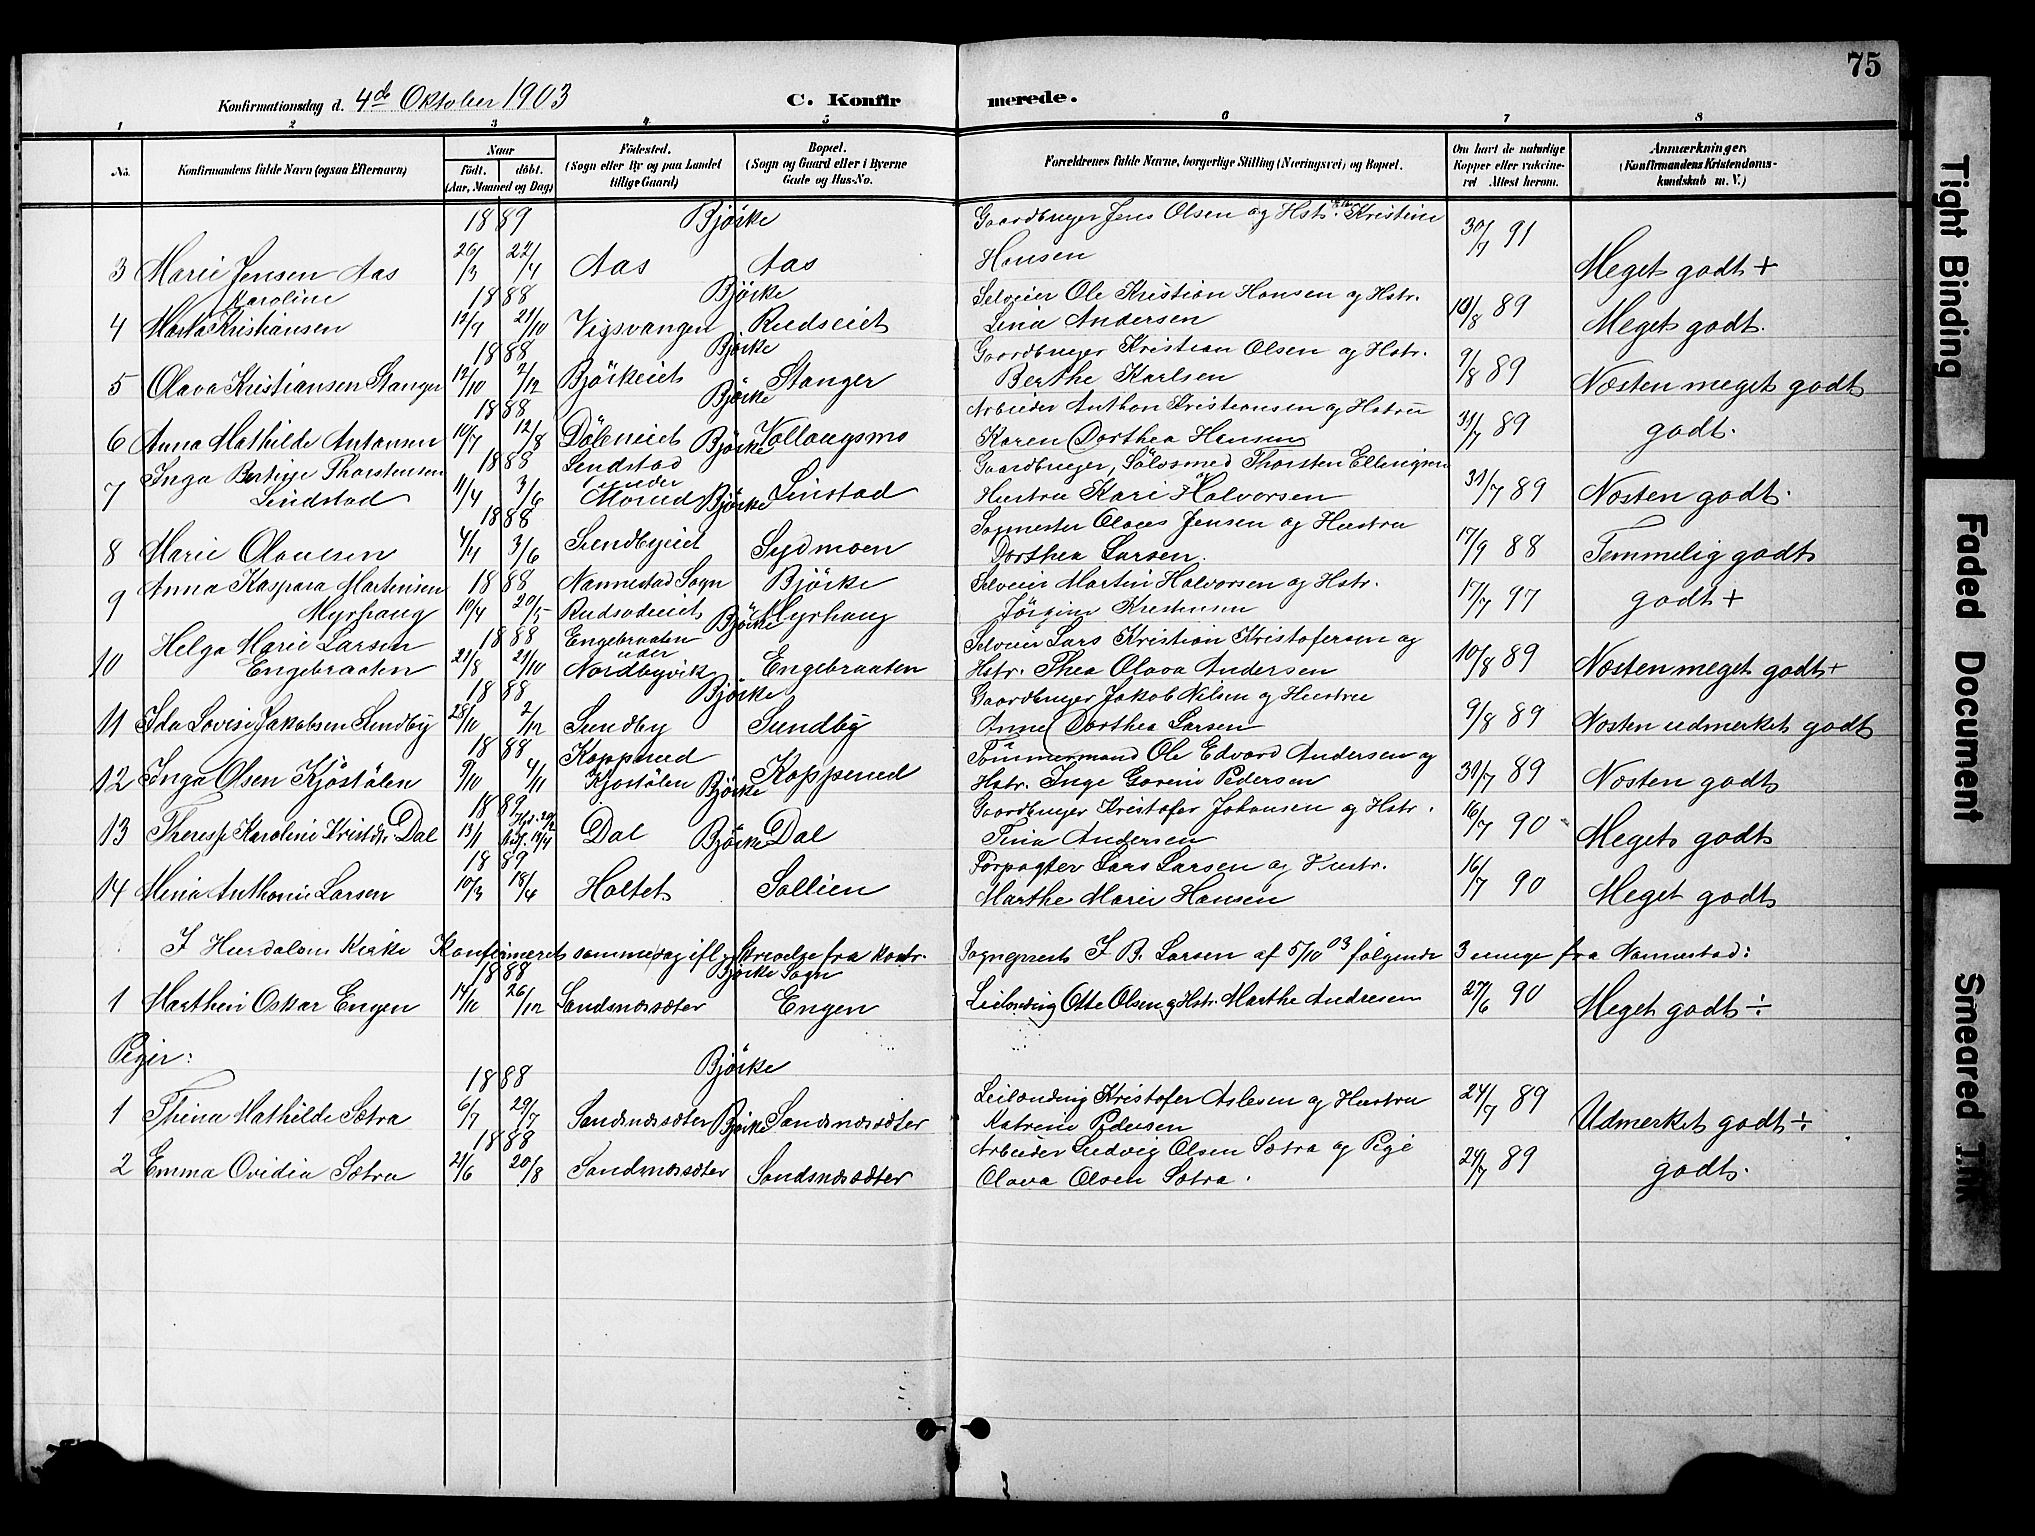 75
Konfirmationsdag d. 4de Oktober 1903
C. Konfirmerede.
1 2 3 4 5 6 7 8
No. Konfirmandens fulde Navn (ogsaa Efternavn)
Naar
Födt. döbt.
(Aar, Maaned og Dag)
Födested.
(Sogn eller By og paa Landet
tillige Gaard)
Bopæl.
(Sogn og Gaard eller i Byerne
Gade og Hus-No.
Forældrenes fulde Navne, borgerlige Stilling (Næringsvei) og Bopæl.
Om havt de naturlige
Kopper eller vakcine-
ret Attest herom.
Anmærkninger.
(Konfirmandens Kristendoms-
kundskab m. V.)
1889 Björke Gaardbruger Jens Olsen og Hstr. Kristine
3 Marie Jensen Aas 26/3 22/4 Aas Aas Hansen 30/7 91 Meget godt +
Karoline 1888 Björke Selveier Ole Kristian Hansen og Hstr.
4 Marta Kristiansen 12/9 21/10 Vigsvangen Rudseiet Lina Andersen 10/8 89 Meget godt.
1888 Björke Gaardbruger Kristian Olsen og Hstr.
5 Olava Kristiansen Stanger 12/10 2/12 Björkeiet Stanger Berthe Karlsen 9/8 89 Næsten meget godt
1888 Björke Arbeider Anthon Kristiansen og Hstru
6 Anna Mathilde Antonsen 10/7 12/8 Döleneiet Vollaugsmo Karen Dorthea Hansen 31/7 89 godt.
Inga Thorstensen 1888 Björke Gaardbruger, Sölvsmed Thorsten Ellingsen
7 Lindstad 11/4 3/6 Lendstad under Morud Linstad Hustru Kari Halvorsen 31/7 89 Næsten godt.
1888 Björke Sagmester Olaus Jensen og Hustru
8 Marie Olausen 4/4 3/6 Sundbyeiet Sydmoen Dorthea Larsen. 17/9 88 Temmelig godt
Anna Kaspara Martinsen 1888 Nannestad Sogn Björke Selveier Martin Halvorsen og Hstr.
9 Myrhaug 10/4 20/5 Rudsodeiet Myrhaug Jörgine Kristensen 17/7 97 godt +
Helga Marie Larsen 1888 Engebraaten Björke Selveier Lars Kristian Kristofersen og
10 Engebraaten 21/8 21/10 under Nordbyvik Engebraaten Hstr. Thea Olava Andersen 10/8 89 Næsten meget godt +
1888 Björke Gaardbruger Jakob Nilsen og Hustru
11 Ida Lovise Jakobsen Sundby 28/10 2/12 Sundby Sundby Anne Dorthea Larsen 9/8 89 Næsten udmerket godt
1888 Kopperud Tömmermand Ole Edvard Andersen og
12 Inga Olsen Kjöstölen 9/10 4/11 Kjostölen Kopperud Hstr. Inge Gorine Pedersen 31/7 89 Næsten godt
1889 Björke Gaardbruger Kristofer Johansen og Hstr.
13 Karoline Dal 13/1 Dal Dal Tina Andersen 16/7 90 Meget godt
1889 Björke Forpagter Lars Larsen og Hustr.
14 Mina Anthonie Larsen 10/3 18/4 Holtet Sollien Marthe Marie Hansen 16/7 90 Meget godt
I Hurdalens Kirke Konfirmeret sammedag ifl. Skrivelse fra konst. Sogneprest I. B. Larsen af 5/10 03 følgende 3 unge fra Nannestad:
1888 Björke Sogn
1 Marthin Oskar Engen 14/10 26/12 Sandsnæssæter Engen Leilænding Otte Olsen og Hstr. Marthe Andresen 27/6 90 Meget godt ÷
Piger:
1888 Björke Leilænding Kristofer Aslesen og Hustru
1 Thina Mathilde Sætra 6/7 29/7 Sandsnæssæter Sandsnæssæter Katrine Pedersen 24/7 89 Udmerket godt ÷
1888 Björke Arbeider Ludvig Olsen Sætra og Pige
2 Emma Ovidia Sætra 21/6 20/8 Sandsnæssæter Sandsnæssæter Olava Olsen Sætra. 24/7 89 godt.
Tight Binding
Faded Document
Smeared Ink